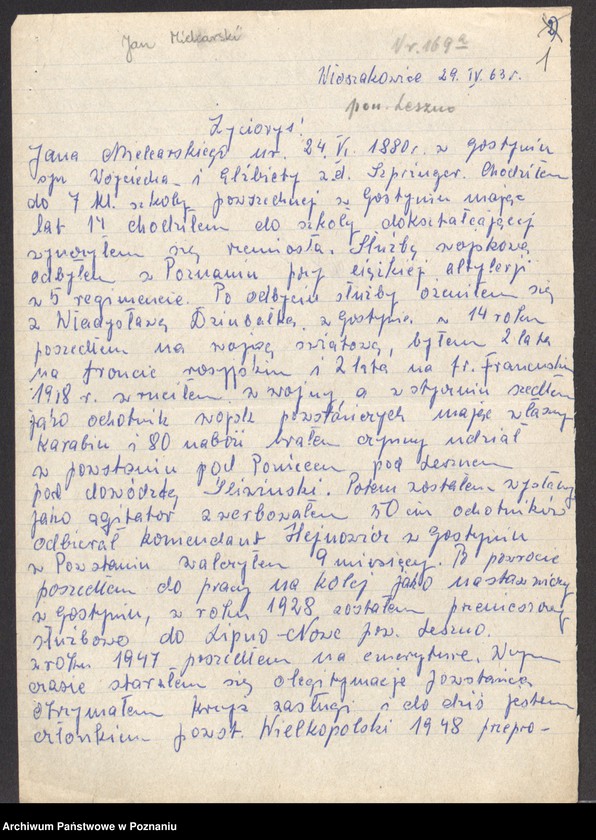 Jan Mielcarski
Nr. 169a
2
1
Włoszakowice 29.IV.63r.
pow. Leszno
Życiorys!
Jana Mielcarskiego ur. 24.VI.1880r. w Gostyniu
syn Wojciecha i Elżbiety z d. Szpringer. Chodziłem
do 7 kl. szkoły powszechnej w Gostyniu mając
lat 14 chodziłem do szkoły dokształcającej
wyuczyłem się rzemiosła. Służbę wojskową
odbyłem w Poznaniu przy ciężkiej altylerji
w 5 regimencie. Po odbyciu służby ożeniłem się
z Władysławą w Gostyniu w 14 roku
poszedłem na wojnę światową, byłem 2 lata
na froncie rosyjskim i 2 lata na fr. Francuskim
1918 r. wruciłem z wojny, a w styczniu szedłem
jako ochotnik wojsk powstańczych mając własny
karabin i 80 naboii brałem czynny udział
w powstaniu pod Poniecem pod Lesznem
pod dowódzcą Śliwinski. Potem zostałem wysłany
jako agitator zwerbowałem 50 ciu ochotników
odbierał komendant Hejnowicz w Gostyniu
w Powstaniu walczyłem 9 miesięcy. Po powrocie
poszedłem do pracy na kolej jako nastawniczy
w Gostyniu, w roku 1928 zostałem przeniesiony
służbowo do Lipno-Nowe pow. Leszno.
w roku 1947 poszedłem na emeryturę. W tym
czasie starałem się o legitymacje Powstańca
otrzymałem krzyż zasługi i do dziś jestem
członkiem powst. Wielkopolski 1948 przepro-
Archiwum Państwowe w Poznaniu